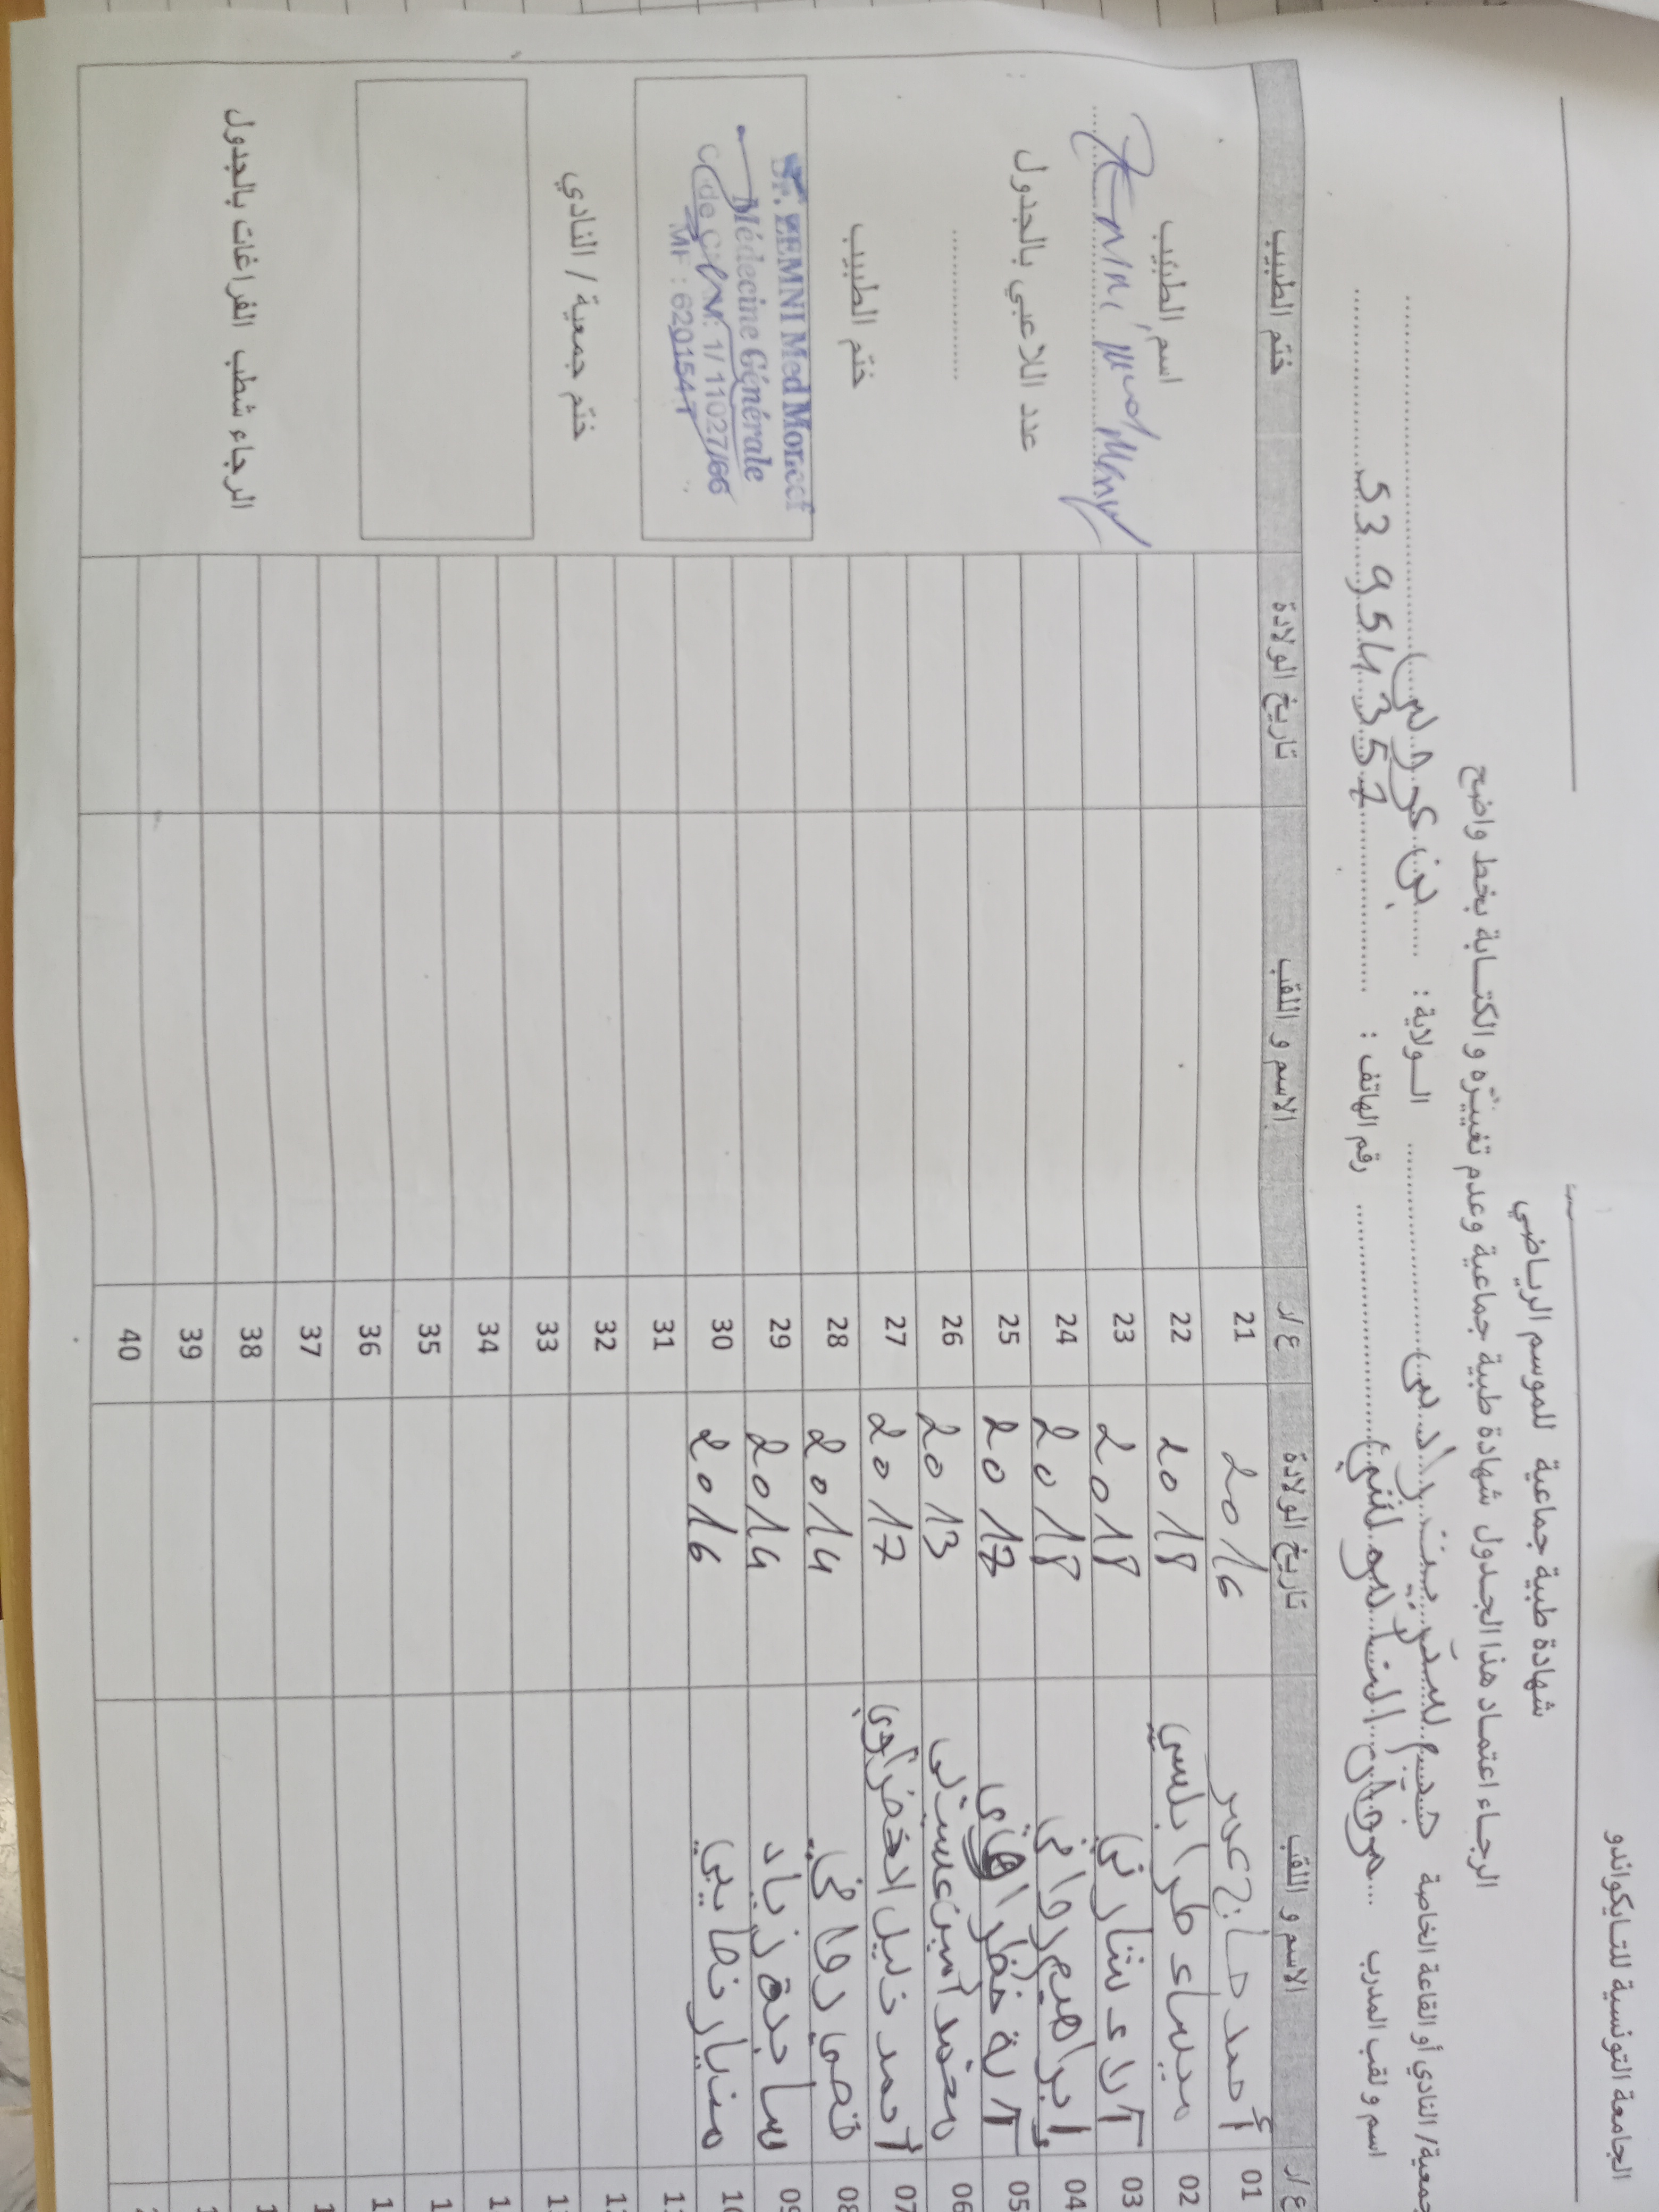 الجامعة التونسية للتايكواندو
شهادة طبية جماعية للموسم الرياضي
الرجاء اعتماد هذا الجدول شهادة طبية جماعية وعدم تغييره و الكتابة بخط واضح
جمعية/ النادي أو القاعة الخاصة الولاية : بن عروس
اسم و لقب المدرب مروان رقم الهاتف : 53 954 357
ع/ر الاسم و اللقب تاريخ الولادة ع/ر الاسم و اللقب تاريخ الولادة ختم الطبيب
01 أحمد حاج عمر 2016 21
02 ميساء طرابلسي 2018 22
03 آلاء شارني 2018 23
04 إبراهيم رواني 2018 24
05 آية 2017 25
06 محمد أمين 2013 26
07 أحمد خليل الخضراوي 2017 27
08 قصي 2014 28
09 ساجدة زياد 2014 29
10 منيار نصايبي 2016 30
31
32
33
34
35
36
37
38
39
40
اسم الطبيب
Zemni Med Moncef
عدد اللاعبي بالجدول
ختم الطبيب
Dr. ZEMNI Med Moncef
Médecine Générale
Code CNAM: 1/ 11027/66
MF : 620154T
ختم جمعية / النادي
الرجاء شطب الفراغات بالجدول